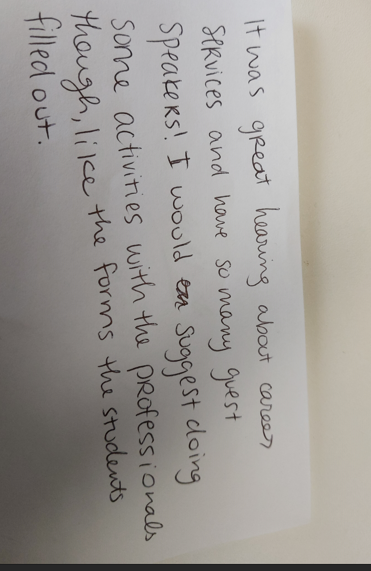 It was great hearing about career
services and have so many guest
speakers! I would suggest doing
some activities with the professionals
though, like the forms the students
filled out.